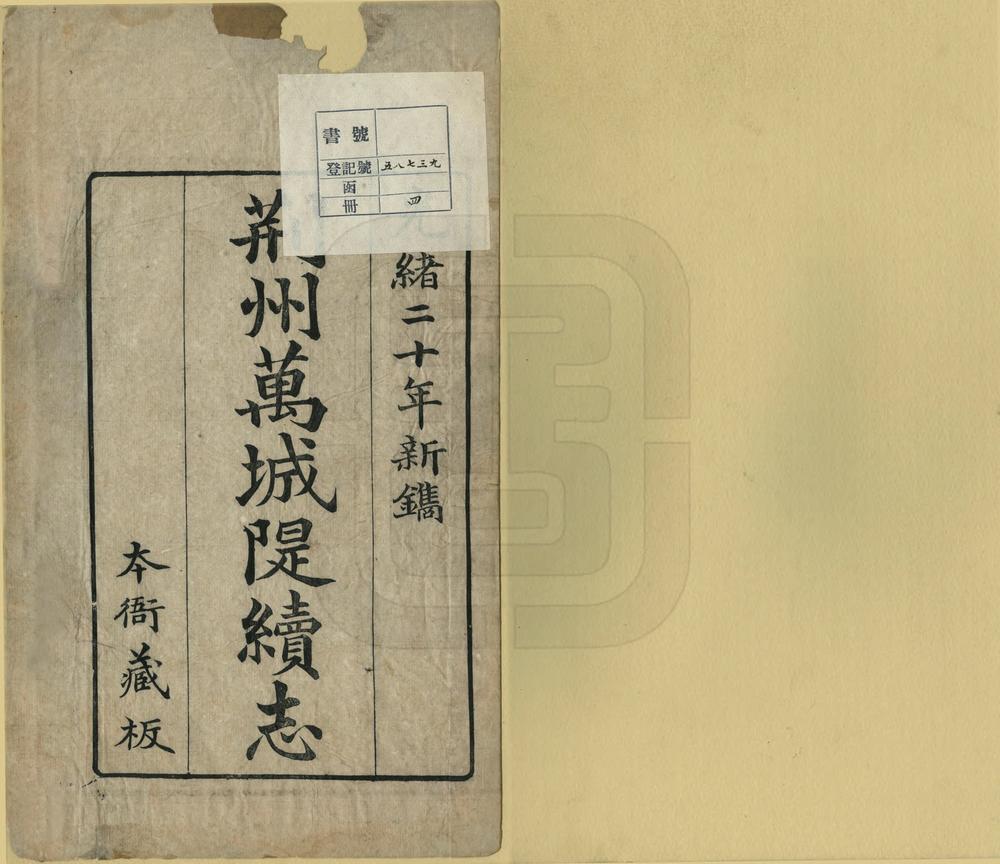 書號
登記號 五八七三九
函
冊 四
光緒二十年新鐫
荊州萬城隄續志
本衙藏板